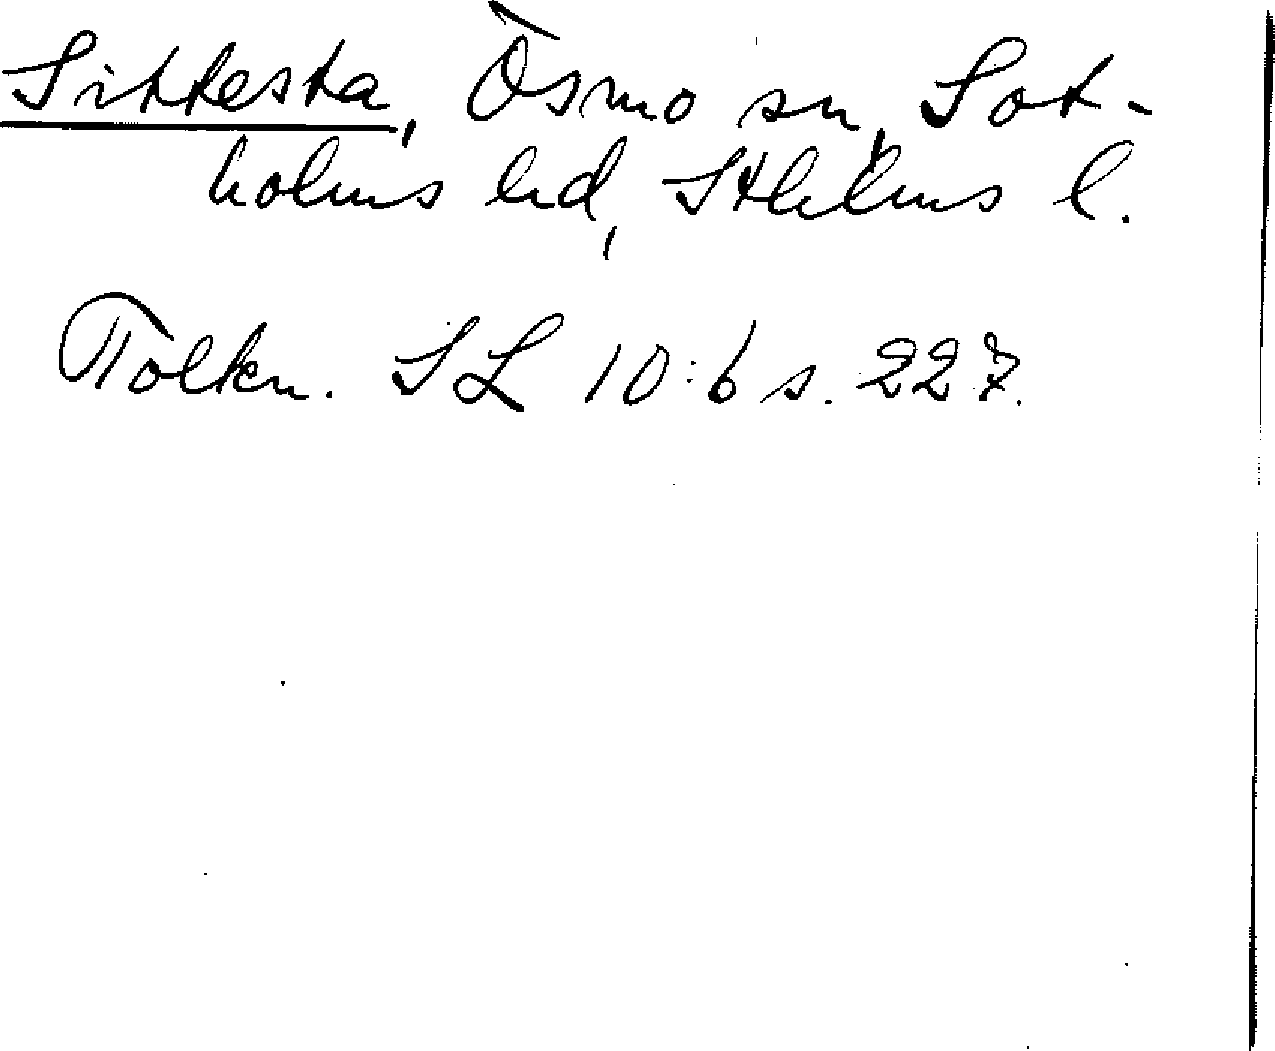 Sittesta, Ösmo sn, Sot-
holms hd, Sthlms l.
Tolkn. SL 10:6 s. 227.